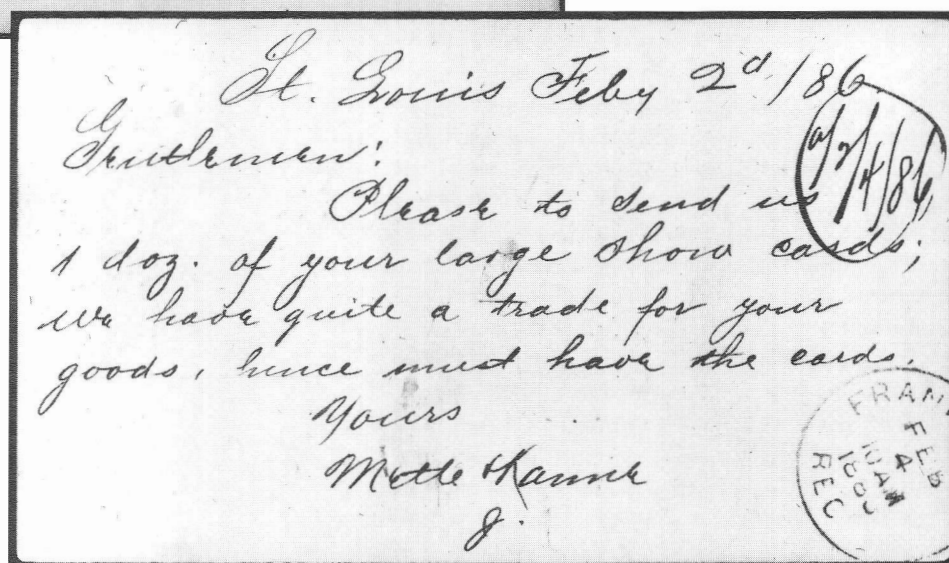 St. Louis Feby 2d /86
Gentlemen:
Please to send us
1 doz. of your large show cards;
we have quite a trade for your
goods, hence must have the cards.
Yours
Mette & Kanne
J.
2/4/86
FRAN
FEB
4
10 AM
REC